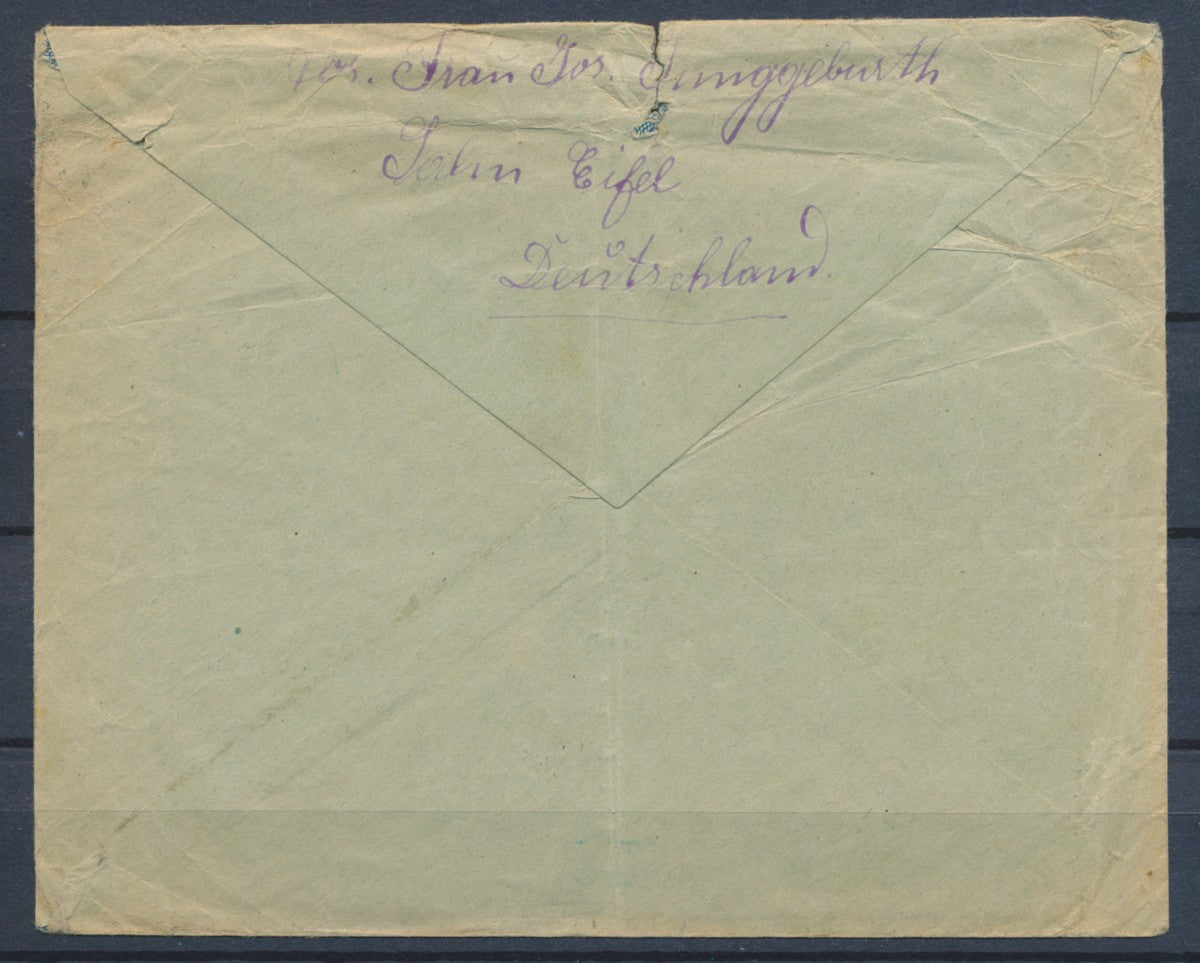 Frau Jos. Junggeburth
Salm Eifel
Deutschland.